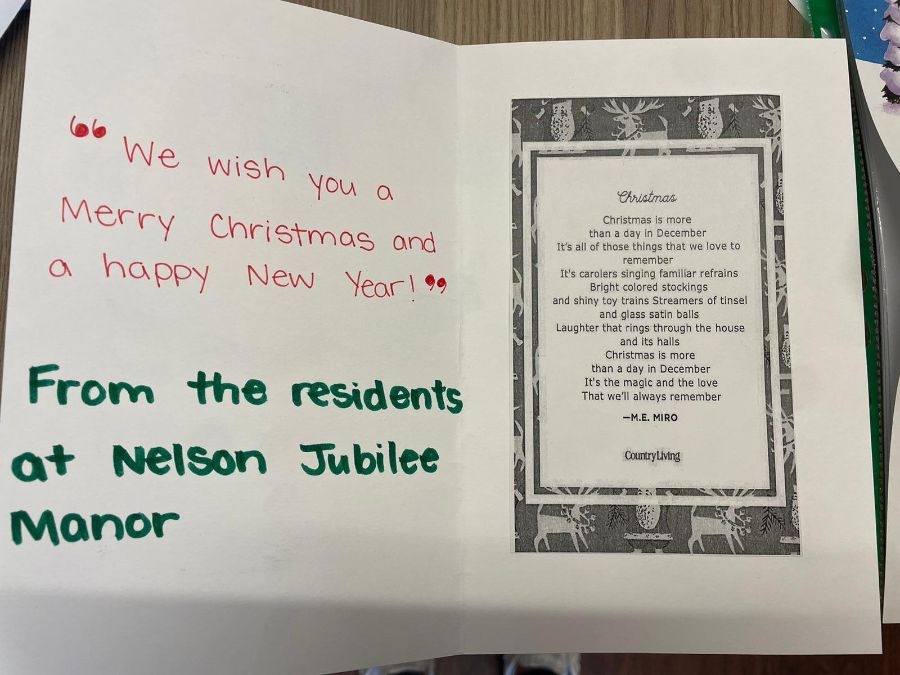 “We wish you a
Merry Christmas and
a happy New Year!”
From the residents
at Nelson Jubilee
Manor
Christmas
Christmas is more
than a day in December
It's all of those things that we love to
remember
It's carolers singing familiar refrains
Bright colored stockings
and shiny toy trains Streamers of tinsel
and glass satin balls
Laughter that rings through the house
and its halls
Christmas is more
than a day in December
It's the magic and the love
That we'll always remember
—M.E. MIRO
CountryLiving